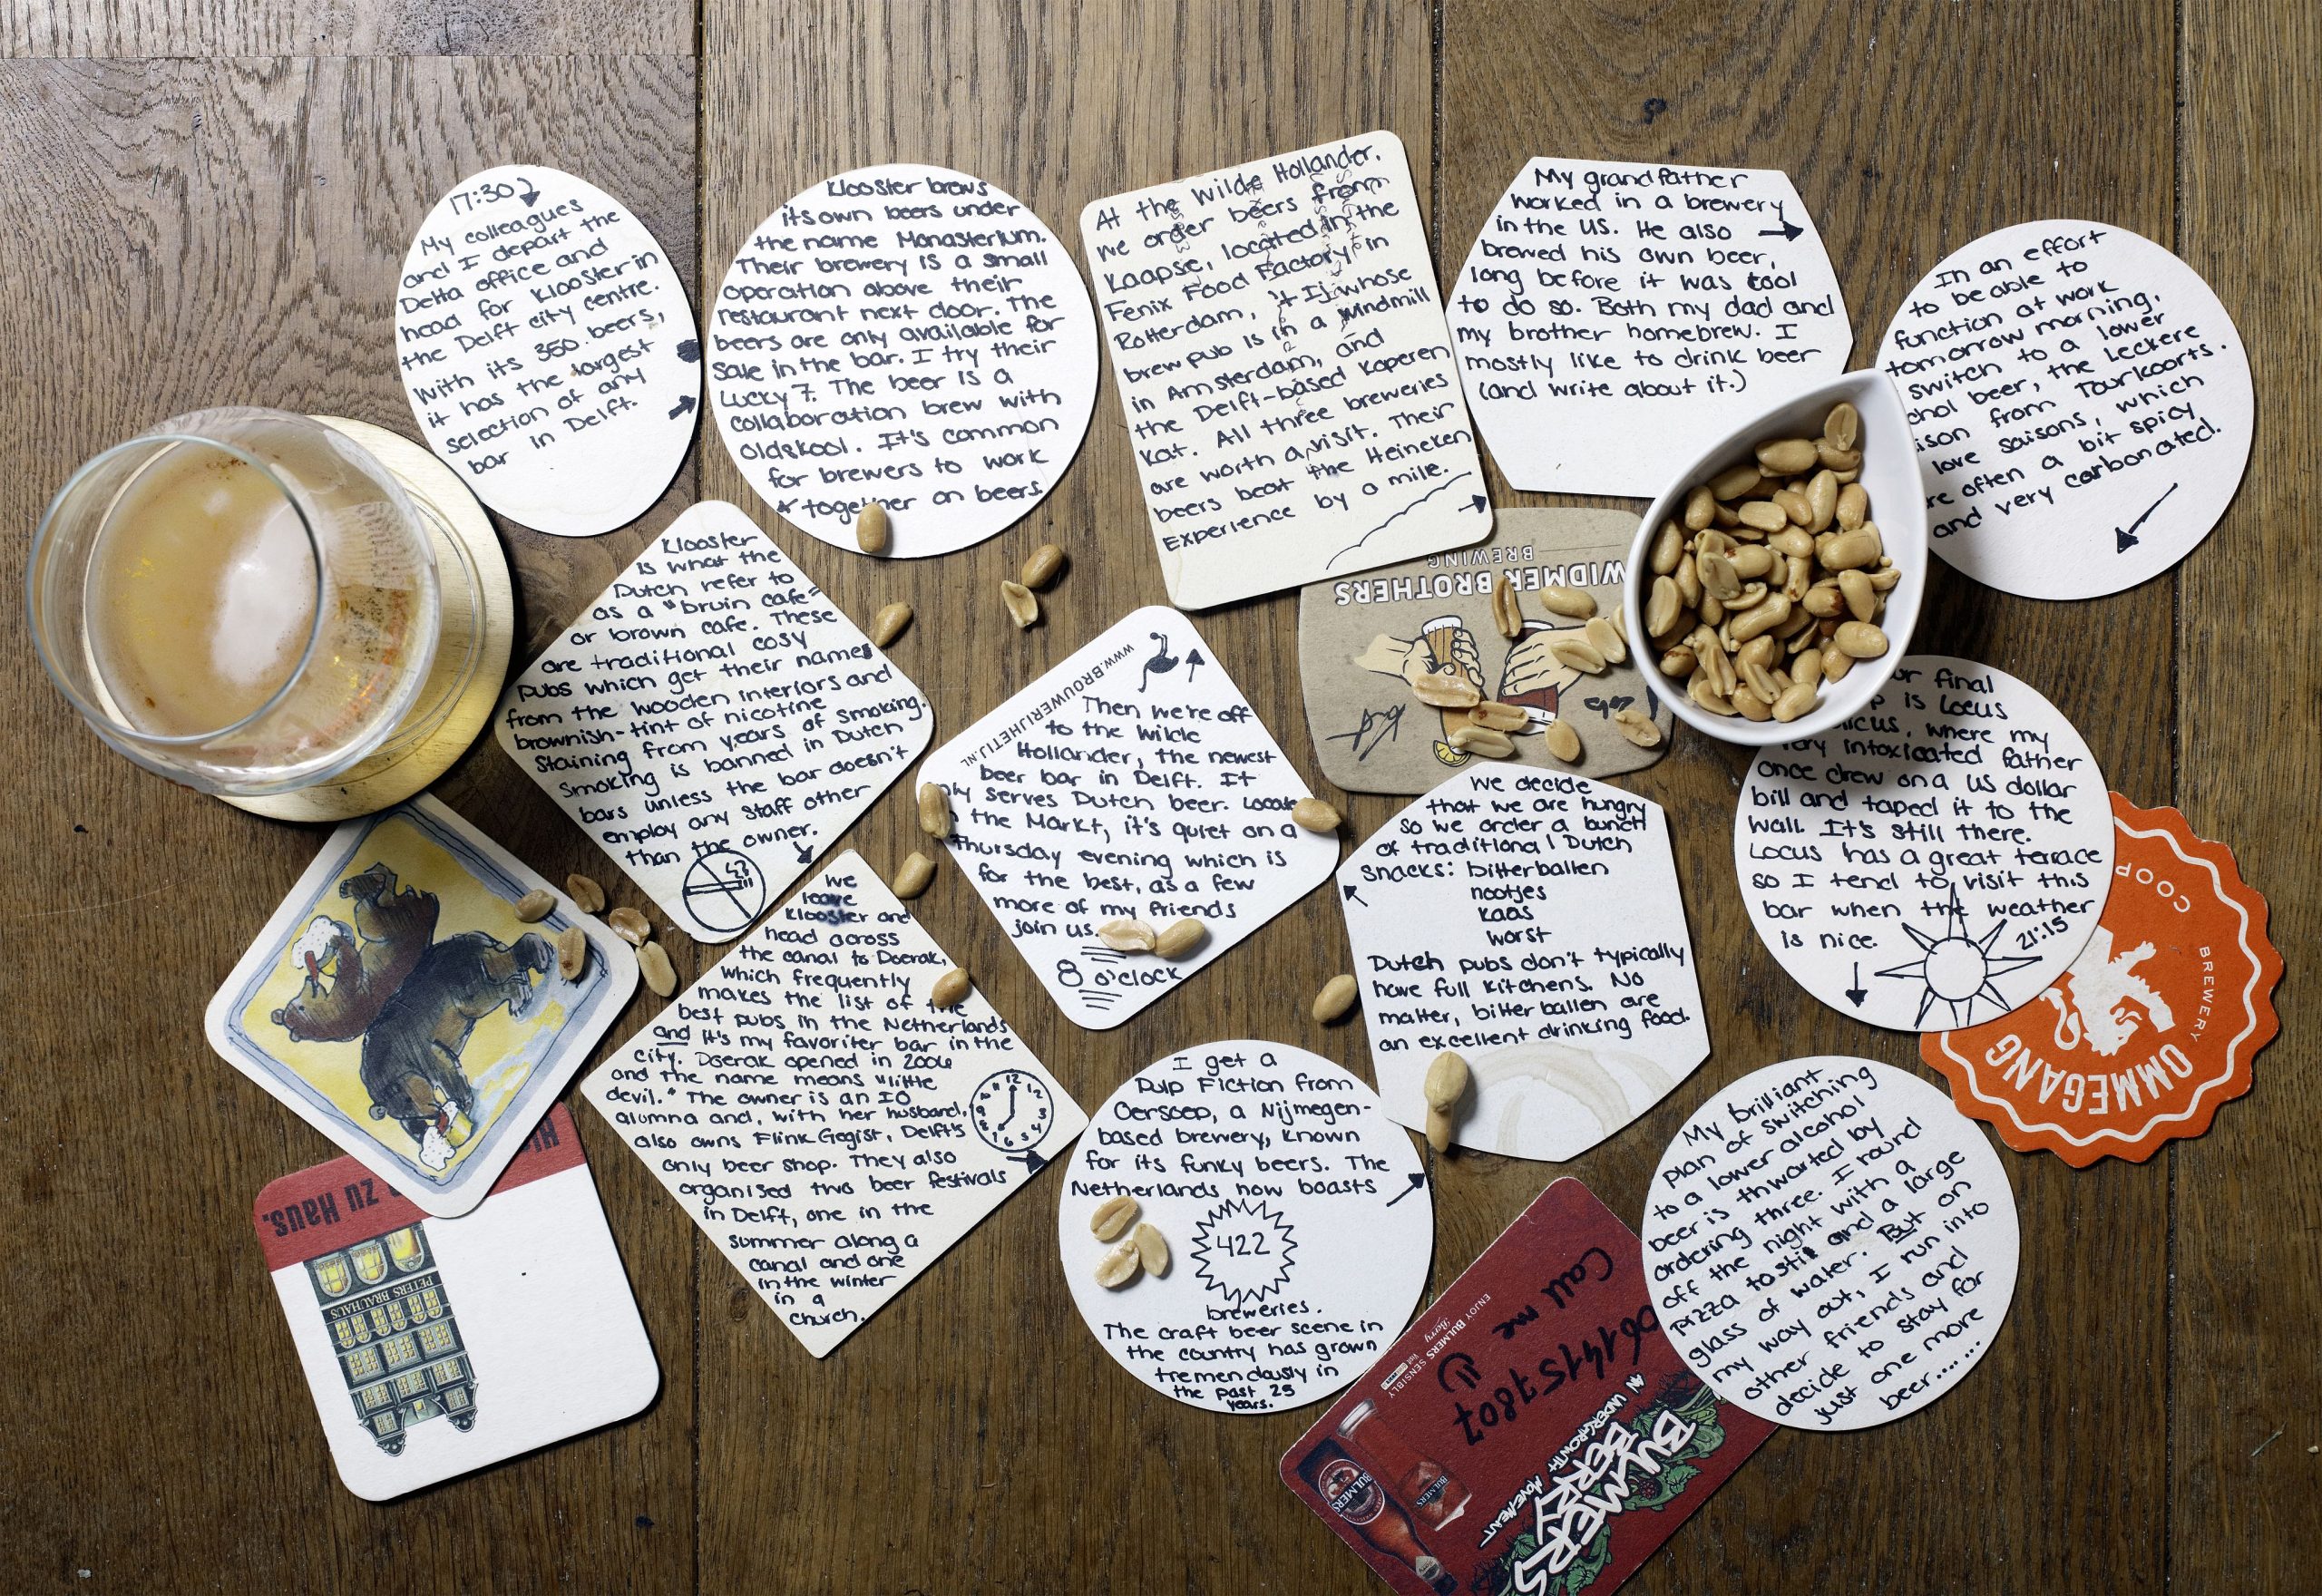 17:30
My colleagues
and I depart the
Delta office and
head for Klooster in
the Delft city centre.
With its 350 beers,
it has the largest
selection of any
bar in Delft.
Klooster brews
its own beers under
the name Monasterium.
Their brewery is a small
operation above their
restaurant next door. The
beers are only available for
sale in the bar. I try their
Lucky 7. The beer is a
collaboration brew with
Oldskool. It's common
for brewers to work
together on beers.
Klooster
is what the
Dutch refer to
as a "bruin cafe"
or brown cafe. These
are traditional cosy
pubs which get their names
from the wooden interiors and
brownish-tint of nicotine
staining from years of smoking.
Smoking is banned in Dutch
bars unless the bar doesn't
employ any staff other
than the owner.
We
leave
Klooster and
head across
the canal to Doerak,
which frequently
makes the list of the
best pubs in the Netherlands
and it's my favoriter bar in the
city. Doerak opened in 2006
and the name means "little
devil." The owner is an IO
alumna and, with her husband,
also owns Flink Gegist, Delft's
only beer shop. They also
organised two beer festivals
in Delft, one in the
summer along a
canal and one
in the winter
in a
church.
12
1
2
3
4
5
6
7
8
9
10
11
WWW.BROUWERIJHETIJ.NL
Then we're off
to the Wilde
Hollander, the newest
beer bar in Delft. It
serves Dutch beer.
the Markt, it's quiet on a
Thursday evening which is
for the best, as a few
more of my friends
join us.
8 o'clock
At the Wilde Hollander,
we order beers from
Kaapse, located in the
Fenix Food Factory in
Rotterdam, 't Ij whose
brew pub is in a windmill
in Amsterdam, and
the Delft-based Koperen
Kat. All three breweries
are worth a visit. Their
beers beat the Heineken
Experience by a mile.
My grandfather
worked in a brewery
in the US. He also
brewed his own beer,
long before it was cool
to do so. Both my dad and
my brother homebrew. I
mostly like to drink beer
(and write about it.)
In an effort
to be able to
function at work
tomorrow morning,
switch to a lower
beer, the leckere
from Tourkoorts.
love saisons, which
often a bit spicy
and very carbonated.
WIDMER BROTHERS
BREWING
We decide
that we are hungry
so we order a bunch
of traditional Dutch
snacks: bitterballen
nootjes
kaas
worst
Dutch pubs don't typically
have full kitchens. No
matter, bitterballen are
an excellent drinking food.
I get a
Pulp Fiction from
Oersoep, a Nijmegen-
based brewery, known
for its funky beers. The
Netherlands now boasts
422
breweries.
The craft beer scene in
the country has grown
tremendously in
the past 25
years.
final
is Locus
where my
very intoxicated father
once drew on a US dollar
bill and taped it to the
wall. It's still there.
Locus has a great terrace
so I tend to visit this
bar when the weather
is nice.
21:15
My brilliant
plan of switching
to a lower alcohol
beer is thwarted by
ordering three. I round
off the night with a
pizza tosti and a large
glass of water. But on
my way out, I run into
other friends and
decide to stay for
just one more
beer......
BREWERY
OMMEGANG
COOP
zu Haus.
PETERS BRAUHAUS
Call me
0614157807
ENJOY BULMERS SENSIBLY
BULMERS
BERRY
AN UNDERGROWTH MOVEMENT
BULMERS
BULMERS